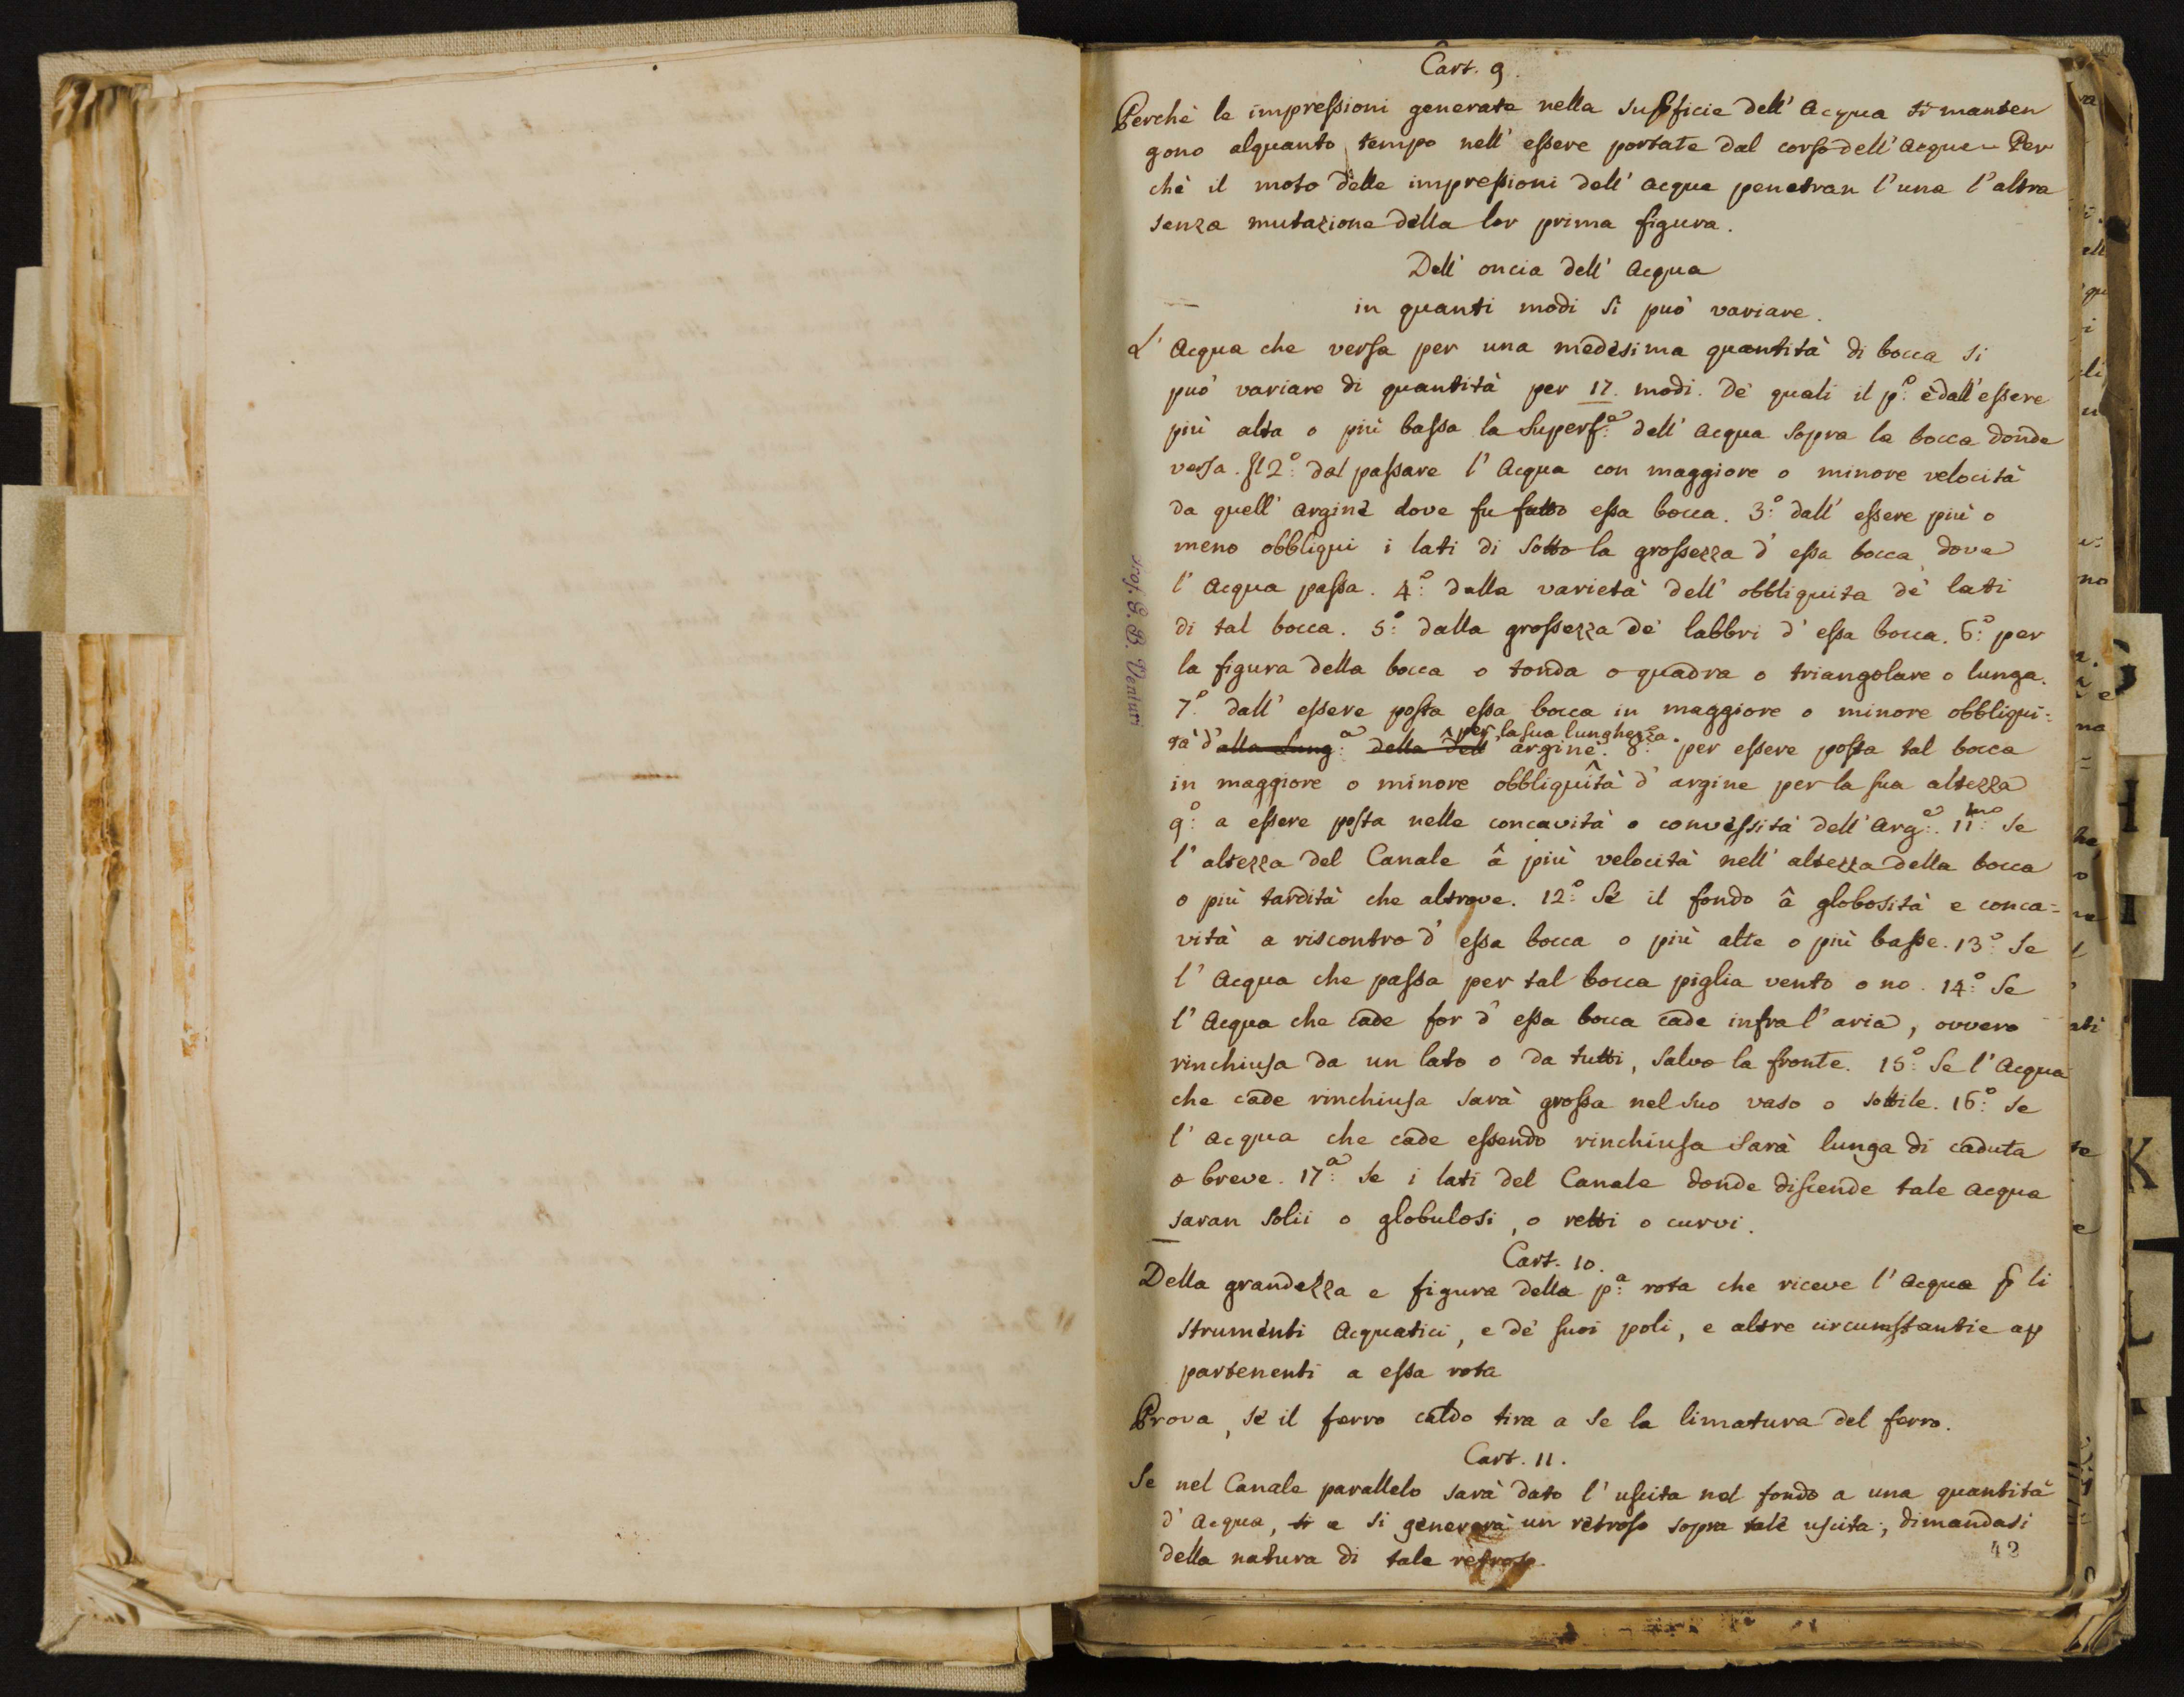 Cart. 9.
Perchè le impressioni generate nella supficie dell' Acqua si manten
gono alquanto tempo nell' essere portate dal corso dell' Acque – Per
chè il moto delle impressioni dell' acqua penetran l'una l'altra
senza mutazione della lor prima figura.
Dell' oncia dell' Acqua
in quanti modi si può variare.
L' Acqua che versa per una medesima quantità di bocca si
può variare di quantità per 17. modi. De' quali il p.º è dall' essere
più alta o più bassa la Superf.ª dell' Acqua sopra la bocca donde
versa. Il 2.º dal passare l' Acqua con maggiore o minore velocità
da quell' argine dove fu fatto essa bocca. 3.º dall' essere più o
meno obbliqui i lati di sotto la grossezza d' essa bocca dove
l' Acqua passa. 4.º dalla varietà dell' obbliquita de' lati
di tal bocca. 5.º dalla grossezza de' labbri d' essa bocca. 6.º per
la figura della bocca o tonda o quadra o triangolare o lunga.
7.º dall' essere posta essa bocca in maggiore o minore obbliqui=
per la sua lunghezza.
tà d'alla Lung.ª della dell' argine. 8.º per essere posta tal bocca
in maggiore o minore obbliquità d' argine per la sua altezza
9.º a essere posta nelle concavità o convessità dell' Arg.e 11.mo Se
l' altezza del Canale â più velocità nell' altezza della bocca
o più tardità che altrove. 12.º Se il fondo â globosità e conca=
vità a riscontro d' essa bocca o più alte o più basse. 13.º Se
l' Acqua che passa per tal bocca piglia vento o no. 14.º Se
l' Acqua che cade for d' essa bocca cade infra l' aria, ovvero
rinchiusa da un lato o da tutti, salvo la fronte. 15.º Se l' Acqua
che cade rinchiusa sarà grossa nel suo vaso o sottile. 16.º Se
l' acqua che cade essendo rinchiusa sarà lunga di caduta
o breve. 17.ª Se i lati del Canale donde discende tale acqua
saran solii o globulosi, o retti o curvi.
Cart. 10.
Della grandezza e figura della p.ª rota che riceve l' Acqua p li
strumenti Acquatici, e de' suoi poli, e altre circumstantie ap
partenenti a essa rota
Prova, se il ferro caldo tira a se la limatura del ferro.
Cart. 11.
Se nel Canale parallelo sarà dato l' uscita nel fondo a una quantità
d' Acqua, si e si genererà un retroso sopra tale uscita; dimandasi
della natura di tale retroso.
42
Prof. G. B. Venturi
K